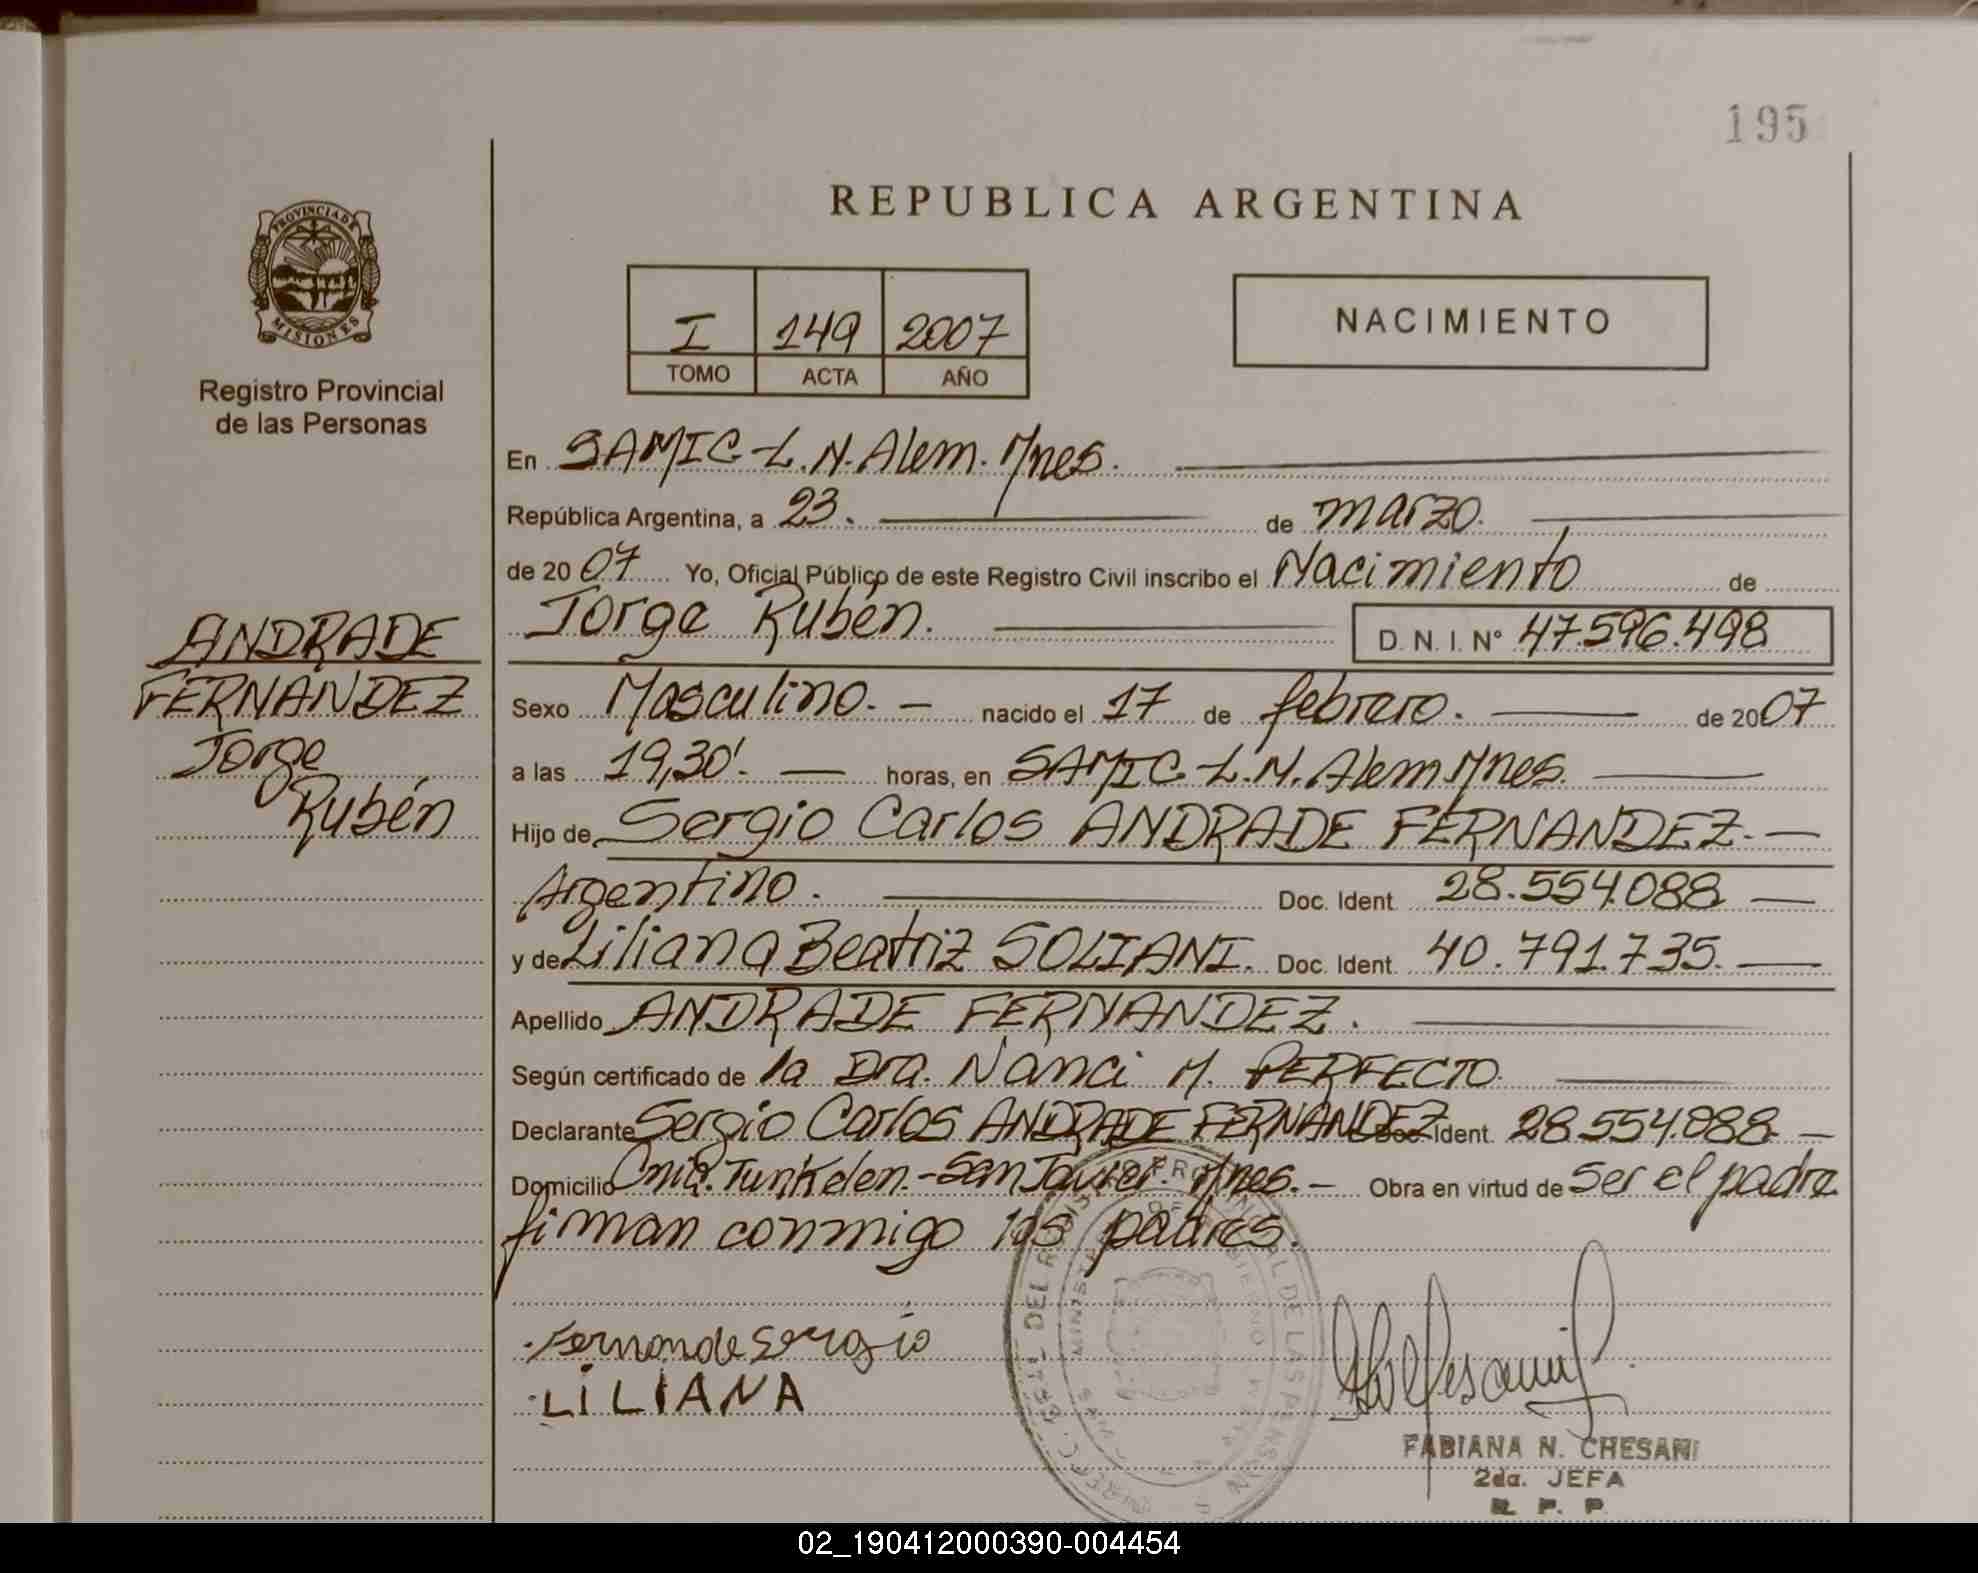 195
REPUBLICA ARGENTINA
PROVINCIA DE
MISIONES
Registro Provincial
de las Personas
I 149 2007
TOMO ACTA AÑO
NACIMIENTO
En SAMIC-L.N.Alem.Mnes.
República Argentina, a 23. de marzo.
de 20 07 Yo, Oficial Público de este Registro Civil inscribo el Nacimiento de
Jorge Rubén. D. N. I. N° 47.596.498
ANDRADE
FERNANDEZ
Jorge
Rubén
Sexo Masculino. nacido el 17 de febrero. de 2007
a las 19,30'. horas, en SAMIC-L.N.Alem Mnes.
Hijo de Sergio Carlos ANDRADE FERNANDEZ.
Argentino. Doc. Ident. 28.554.088
y de Liliana Beatriz SOLIANI. Doc. Ident. 40.791.735.
Apellido ANDRADE FERNANDEZ.
Según certificado de la Dra. Nanci M. PERFECTO.
Declarante Sergio Carlos ANDRADE FERNANDEZ Doc. Ident. 28.554.088
Domicilio Cnia. Tunkelen.-San Javier. Mnes. Obra en virtud de ser el padre
firman conmigo los padres.
Fernande Sergio
LILIANA
FABIANA N. CHESANI
2da. JEFA
R. P. P.
02_190412000390-004454